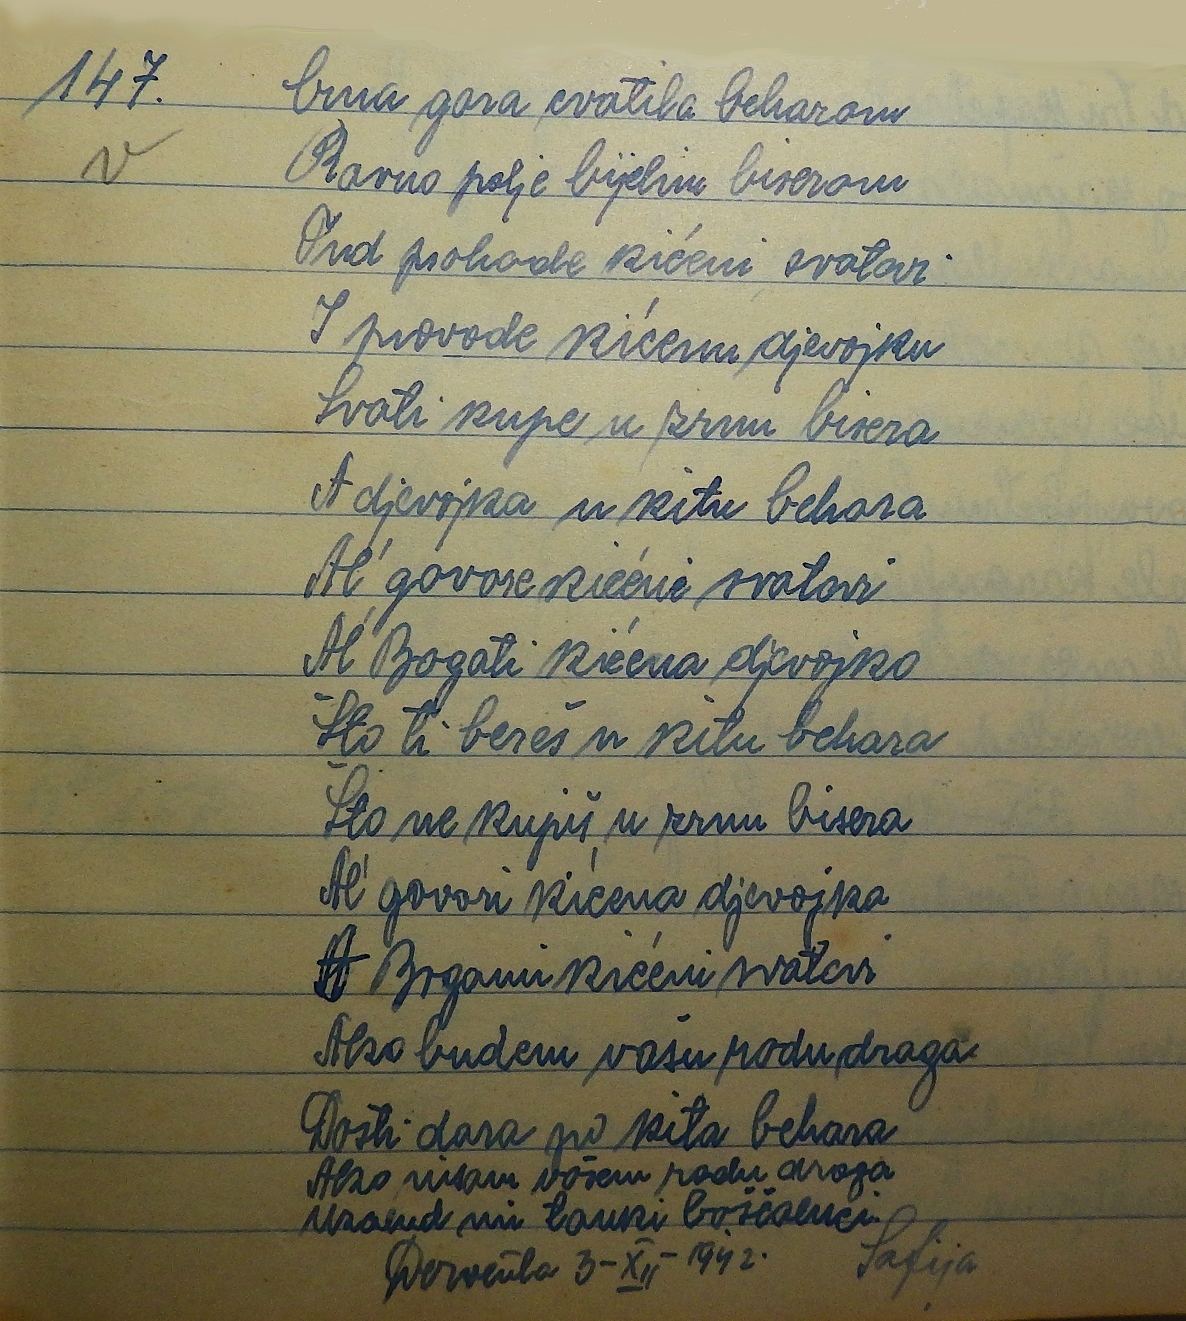 147. Crna gora cvatila beharom
Ravno polje bijelim biserom
Tud prohode kićeni svatovi
I provode kićenu djevojku
Svati kupe u zrnu bisera
A djevojka u kitu behara
Al' govore kićeni svatovi
Al' Bogati kićena djevojko
Što ti bereš u kitu behara
Što ne kupiš u zrnu bisera
Al' govori kićena djevojka
A Bogami kićeni svatovi
Ako budem vašu rodu draga
Dosti dara po kita behara
Ako nisam vašem rodu draga
Uzalud mi tanki boščaluci.
Derventa 3-XII-1942. Safija